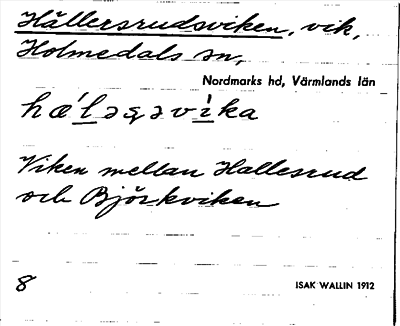 Hällersrudsviken, vik,
Holmedals sn,
Nordmarks hd, Värmlands län
hæ´ləsəvì`ka
Viken mellan Hallesrud
och Björkviken
8
ISAK WALLIN 1912